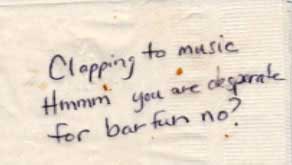 Clapping to music
Hmmm you are desperate
for bar fun no?